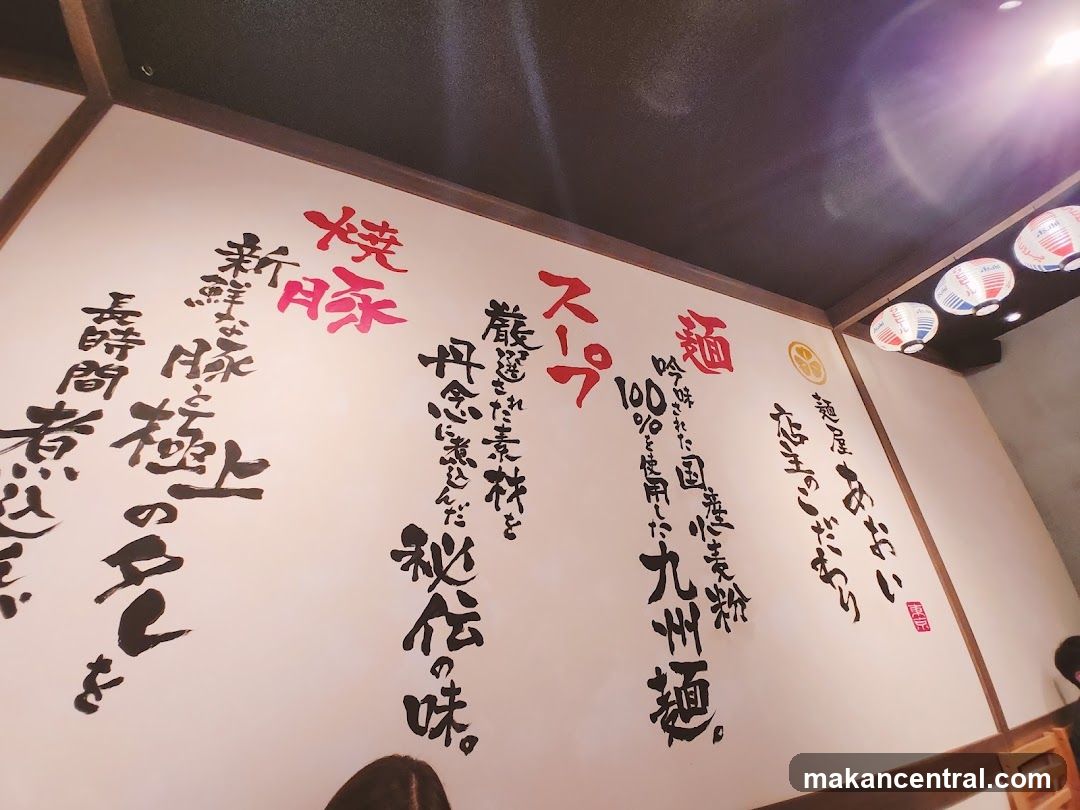 麺屋あおい
東京
店主のこだわり
麺
吟味された国産小麦粉
100%を使用した九州麺。
スープ
厳選された素材を
丹念に煮込んだ秘伝の味。
焼豚
新鮮な豚と極上のタレを
長時間煮込み
makancentral.com